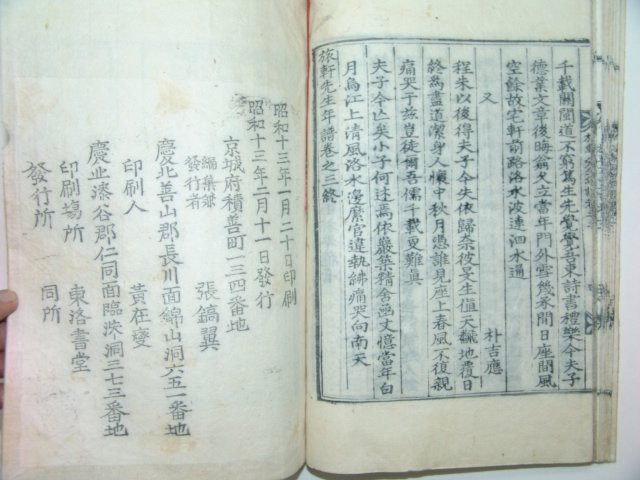 千載關閩道不窮篤生先覺覺吾東詩書禮樂今夫子
德業文章後晦翁夕立當年門外雪幾承間日座間風
空餘故宅軒前路洛水波連泗水通
又
朴吉應
程朱以後得夫子今失依歸奈彼旻生値天飜地覆日
終爲盡道潔身人懷中秋月憑誰見座上春風不復親
痛哭于玆豈徒爾吾儒 載更難眞
夫子今亡矣小子何述焉依巖築精舍函丈憶當年白
月烏江上淸風洛水邊縻官違執紼痛哭向南天
旅軒先生年譜卷之二終
昭和十三年一月二十日印刷
昭和十三年二月十一日發行
京城府積善町一三四番地
編集兼
發行者 張鎬翼
慶北善山郡長川面錦山洞六五一番地
印刷人 黃在燮
慶北漆谷郡仁同面臨洙洞三七三番地
印刷場所 東洛書堂
發行所 同所